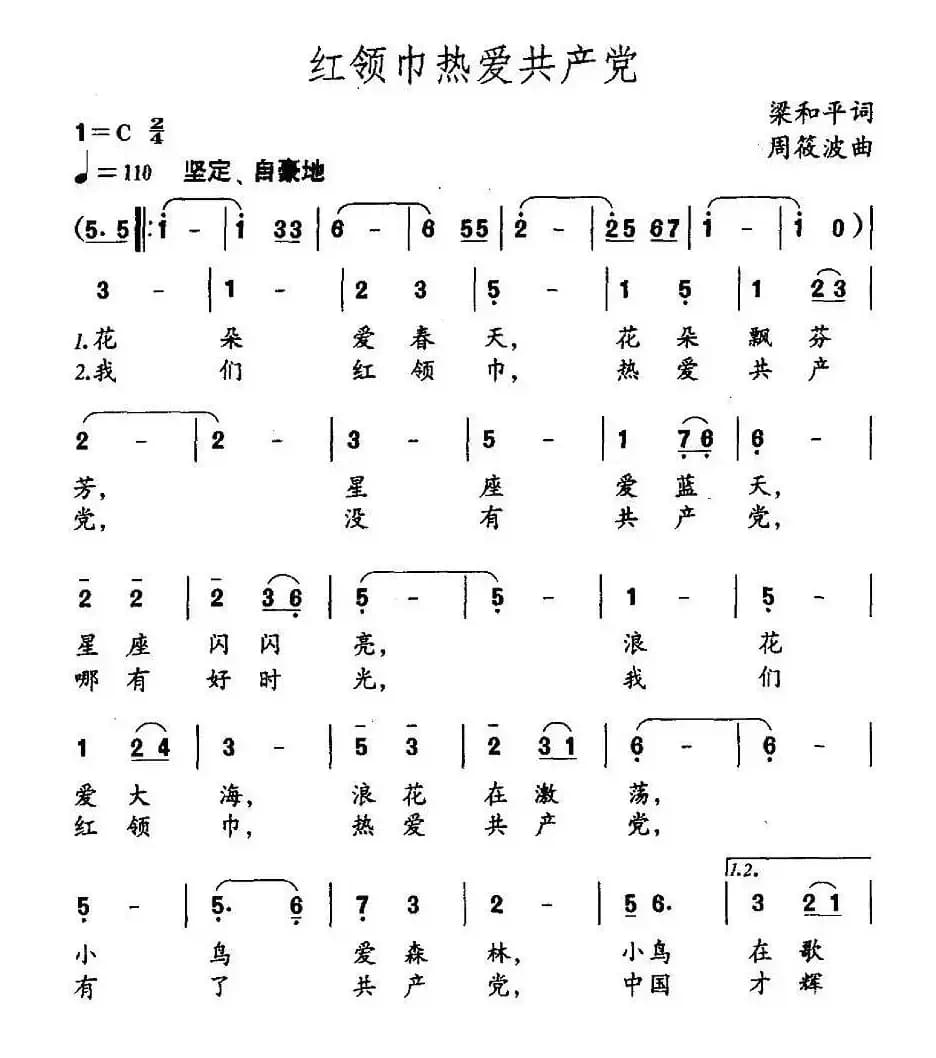 红领巾热爱共产党
梁和平词
1=C 2/4
周筱波曲
♩=110 坚定、自豪地
(5. 5 ‖: 1 - | 1 33 | 6 - | 6 55 | 2 - | 25 67 | 1 - | 1 0 ) |
3 - | 1 - | 2 3 | 5 - | 1 5 | 1 23 |
1.花 朵 爱 春 天, 花 朵 飘 芬
2.我 们 红 领 巾, 热 爱 共 产
2 - | 2 - | 3 - | 5 - | 1 76 | 6 - |
芳, 星 座 爱 蓝 天,
党, 没 有 共 产 党,
2 2 | 2 36 | 5 - | 5 - | 1 - | 5 - |
星 座 闪 闪 亮, 浪 花
哪 有 好 时 光, 我 们
1 24 | 3 - | 5 3 | 2 31 | 6 - | 6 - |
爱 大 海, 浪 花 在 激 荡,
红 领 巾, 热 爱 共 产 党,
1.2.
5 - | 5. 6 | 7 3 | 2 - | 5 6. | 3 21 |
小 鸟 爱 森 林, 小鸟 在 歌
有 了 共 产 党, 中国 才 辉